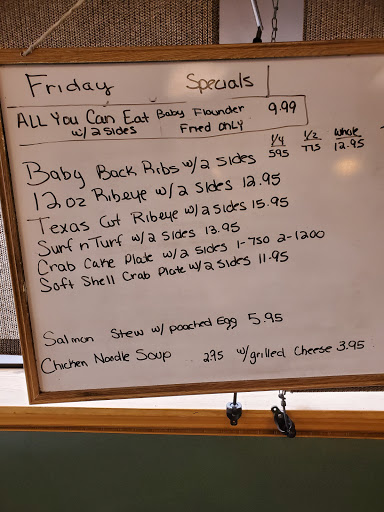 Friday Specials
ALL You Can Eat Baby Flounder 9.99
w/2 sides Fried Only
1/4 1/2 whole
Baby Back Ribs w/2 sides 595 775 12.95
12oz Ribeye w/2 sides 12.95
Texas Cut Ribeye w/2 sides 15.95
Surf n Turf w/2 sides 13.95
Crab Cake Plate w/2 sides 1-750 2-1200
Soft Shell Crab Plate w/2 sides 11.95
Salmon Stew w/ poached Egg 5.95
Chicken Noodle Soup 2.75 w/grilled Cheese 3.95